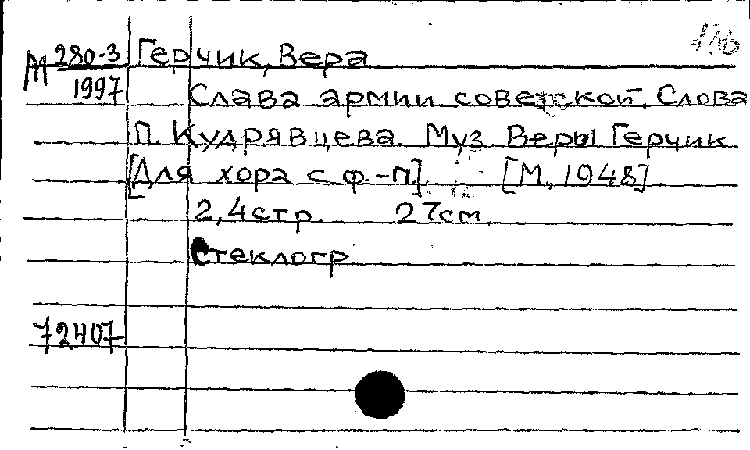 М 280-3 Герчик, Вера
1997 Слава армии советской. Слова
П. Кудрявцева. Муз Веры Герчик
[Для хора с ф-п] [М, 1948]
2,4стр. 27см.
Стеклогр
72407